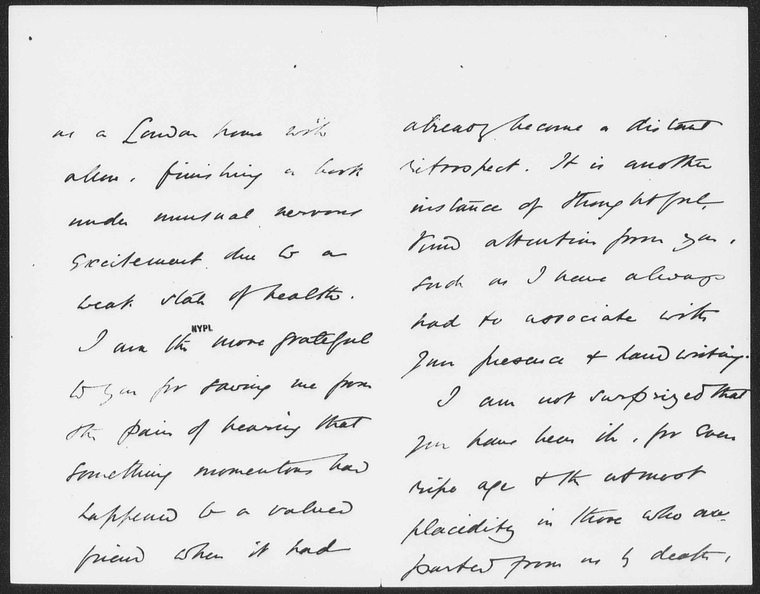 as a London home with
alien, finishing a book
under unusual nervous
excitement due to a
weak state of health.
NYPL
I am the more grateful
to you for saving me from
the pain of hearing that
something momentous had
happened to a valued
friend when it had
already become a distant
retrospect. It is another
instance of thoughtful,
kind attention from you,
such as I have always
had to associate with
your presence & handwriting.
I am not surprized that
you have been ill, for even
ripe age & the utmost
placidity in those who are
parted from us by death,